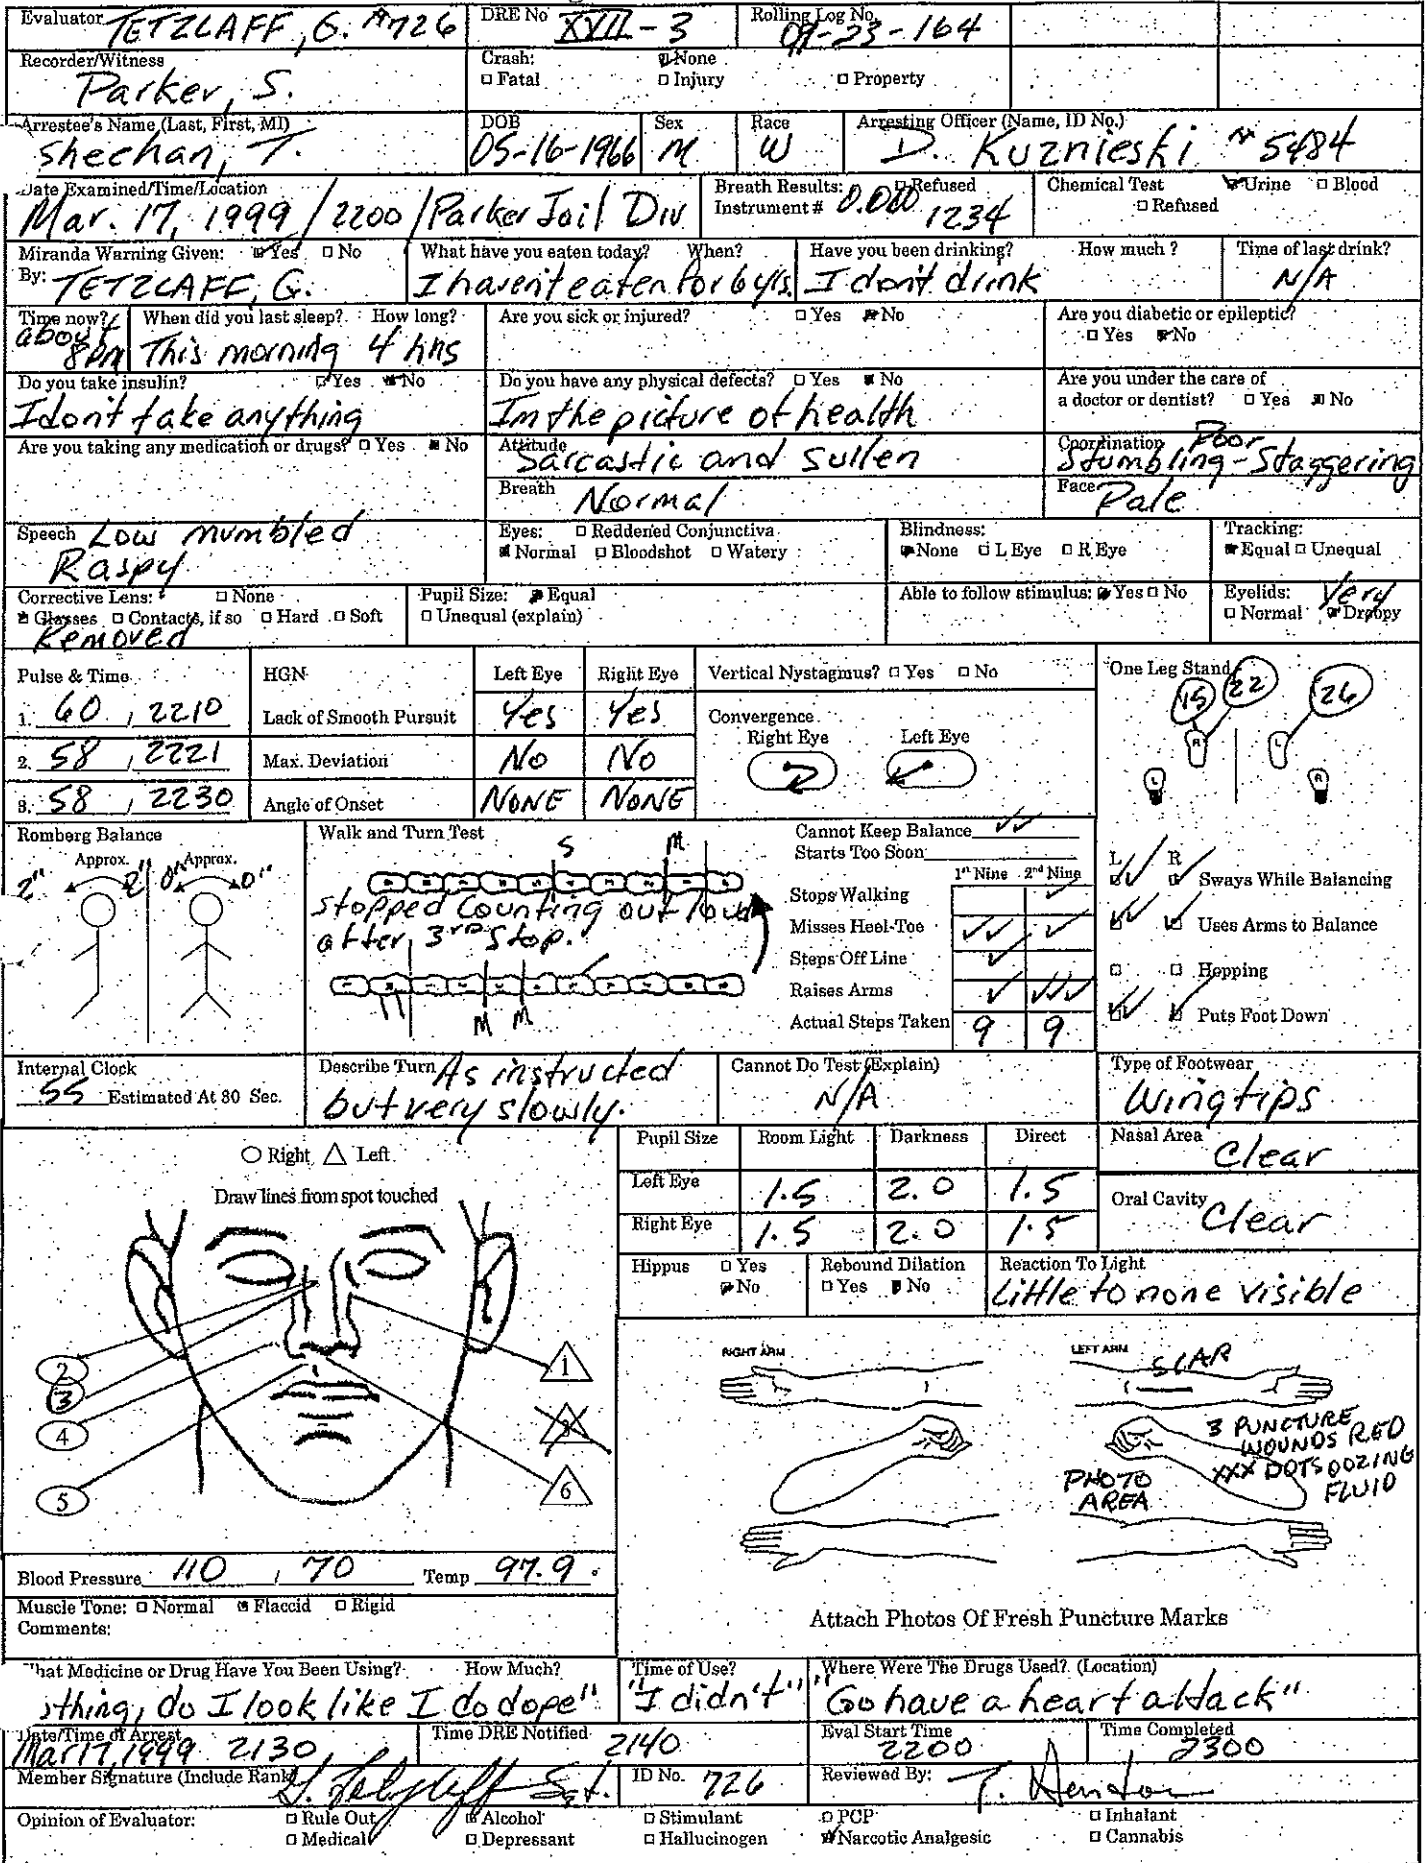 Evaluator TETZLAFF, G. #726
DRE No XVII-3
Rolling Log No. 09-23-164
Recorder/Witness
Parker, S.
Crash: None
Fatal Injury Property
Arrestee's Name (Last, First, MI)
Sheehan, T.
DOB
05-16-1966
Sex
M
Race
W
Arresting Officer (Name, ID No.)
D. Kuznieski #5484
Date Examined/Time/Location
Mar. 17, 1999 /2200/Parker Jail Div
Breath Results: Refused
Instrument # 0.000 1234
Chemical Test Urine Blood
Refused
Miranda Warning Given: Yes No
By: TETZLAFF, G.
What have you eaten today? When?
I haven't eaten for 6 yrs.
Have you been drinking? How much ?
I don't drink
Time of last drink?
N/A
Time now?
about
8pm
When did you last sleep? How long?
This morning 4 hrs
Are you sick or injured? Yes No
Are you diabetic or epileptic?
Yes No
Do you take insulin? Yes No
I don't take anything
Do you have any physical defects? Yes No
Im the picture of health
Are you under the care of
a doctor or dentist? Yes No
Are you taking any medication or drugs? Yes No
Attitude
Sarcastic and Sullen
Coordination Poor
Stumbling-Staggering
Breath Normal
Face Pale
Speech Low mumbled
Raspy
Eyes: Reddened Conjunctiva
Normal Bloodshot Watery
Blindness:
None L Eye R Eye
Tracking:
Equal Unequal
Corrective Lens: None
Glasses Contacts, if so Hard Soft
Removed
Pupil Size: Equal
Unequal (explain)
Able to follow stimulus: Yes No
Eyelids: Very
Normal Droopy
Pulse & Time
1. 60 , 2210
2. 58 , 2221
3. 58 , 2230
HGN Left Eye Right Eye
Lack of Smooth Pursuit Yes Yes
Max. Deviation No No
Angle of Onset NONE NONE
Vertical Nystagmus? Yes No
Convergence
Right Eye Left Eye
One Leg Stand
15 22 26
R L
L R
Romberg Balance
Approx. Approx.
2" 2" 0" 0"
Walk and Turn Test
S M
stopped counting out loud
after 3rd stop.
M M
Cannot Keep Balance
Starts Too Soon
1st Nine 2nd Nine
Stops Walking
Misses Heel-Toe
Steps Off Line
Raises Arms
Actual Steps Taken 9 9
L R
Sways While Balancing
Uses Arms to Balance
Hopping
Puts Foot Down
Internal Clock
55 Estimated At 30 Sec.
Describe Turn As instructed
but very slowly.
Cannot Do Test (Explain)
N/A
Type of Footwear
Wingtips
Right Left
Draw lines from spot touched
2
3
4
5
1
3
6
Pupil Size Room Light Darkness Direct
Left Eye 1.5 2.0 1.5
Right Eye 1.5 2.0 1.5
Nasal Area
Clear
Oral Cavity Clear
Hippus Yes
No
Rebound Dilation
Yes No
Reaction To Light
Little to none visible
RIGHT ARM
LEFT ARM
SCAR
3 PUNCTURE
WOUNDS RED
XXX DOTS OOZING
FLUID
PHOTO
AREA
Attach Photos Of Fresh Puncture Marks
Blood Pressure 110 , 70 Temp 97.9
Muscle Tone: Normal Flaccid Rigid
Comments:
hat Medicine or Drug Have You Been Using? How Much?
thing, do I look like I do dope"
Time of Use?
"I didn't"
Where Were The Drugs Used? (Location)
"Go have a heart attack"
Date/Time of Arrest
Mar 17, 1999 2130
Time DRE Notified
2140
Eval Start Time
2200
Time Completed
2300
Member Signature (Include Rank) Sgt.
ID No. 726
Reviewed By:
Opinion of Evaluator: Rule Out Alcohol Stimulant PCP Inhalant
Medical Depressant Hallucinogen Narcotic Analgesic Cannabis